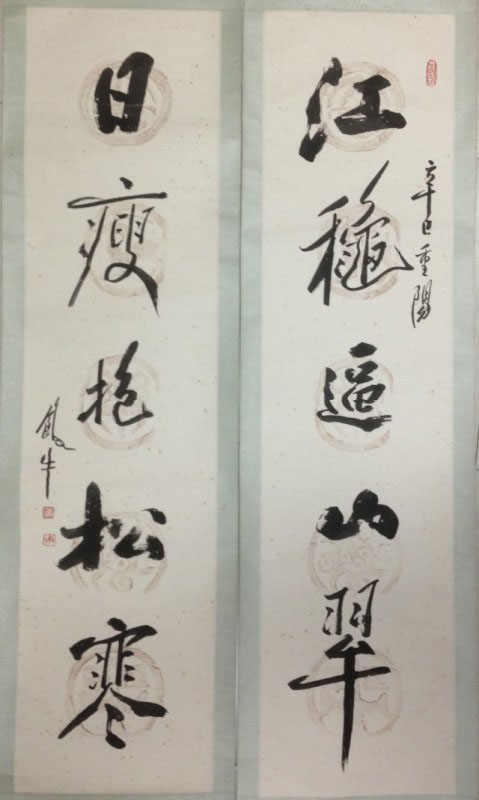 辛巳重陽
江穐逼山翠
日瘦抱松寒
飯牛